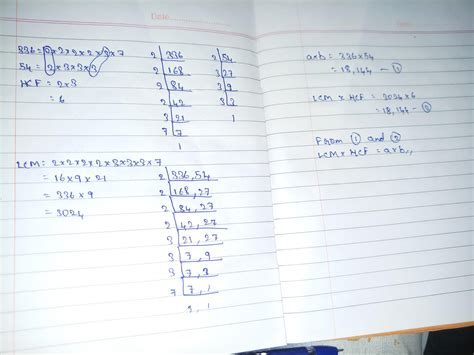 Date
336 = 2×2×2×2×3×7
54 = 2×3×3×3
HCF = 2×3
= 6
2 | 336
2 | 168
2 | 84
2 | 42
3 | 21
7 | 7
1
2 | 54
3 | 27
3 | 9
3 | 3
1
LCM = 2×2×2×2×3×3×3×7
= 16×9×21
= 336×9
= 3024
2 | 336, 54
2 | 168, 27
2 | 84, 27
2 | 42, 27
3 | 21, 27
3 | 7, 9
3 | 7, 3
7 | 7, 1
1, 1
a×b = 336×54
= 18,144 – ①
LCM × HCF = 3024×6
= 18,144 – ②
FROM ① and ②
LCM × HCF = a×b,,